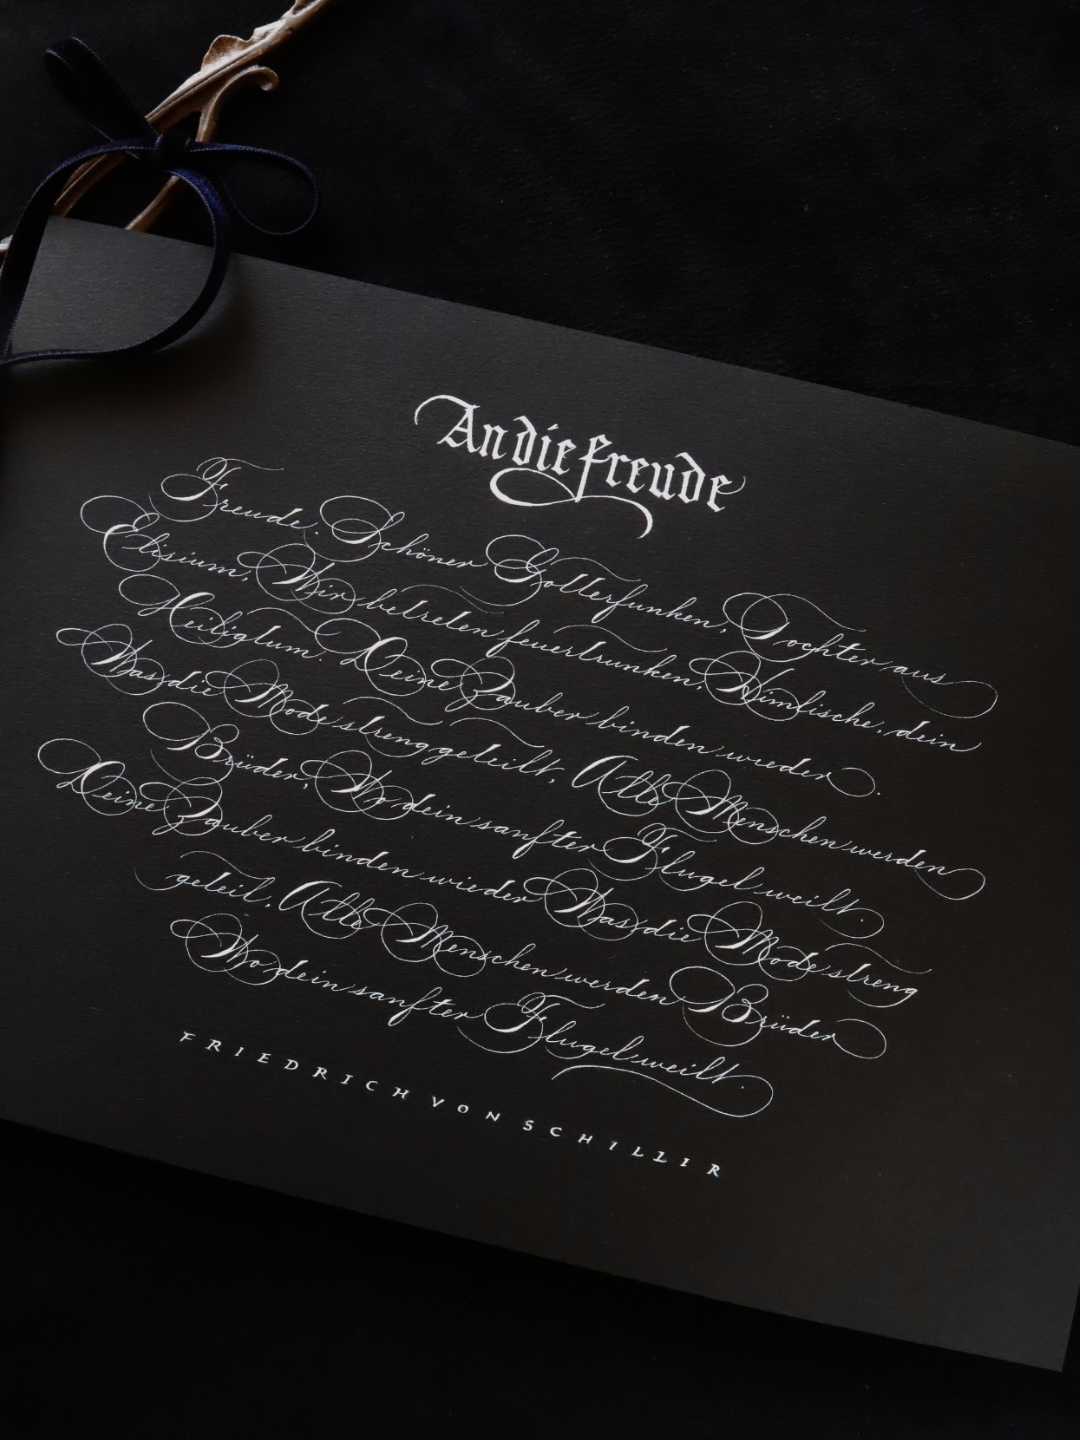 An die Freude
Freude. Schöner Gotterfunken, Tochter aus
Elisium, Wir betreten feuertrunken, Himlische, dein
Heiligtum. Deine Zauber binden wieder.
Was die Mode streng geteilt, Alle Menschen werden
Brüder, Wo dein sanfter Flugel weilt.
Deine Zauber binden wieder Was die Mode streng
geteil, Alle Menschen werden Brüder
Wo dein sanfter Flugel weilt.
FRIEDRICH VON SCHILLIR